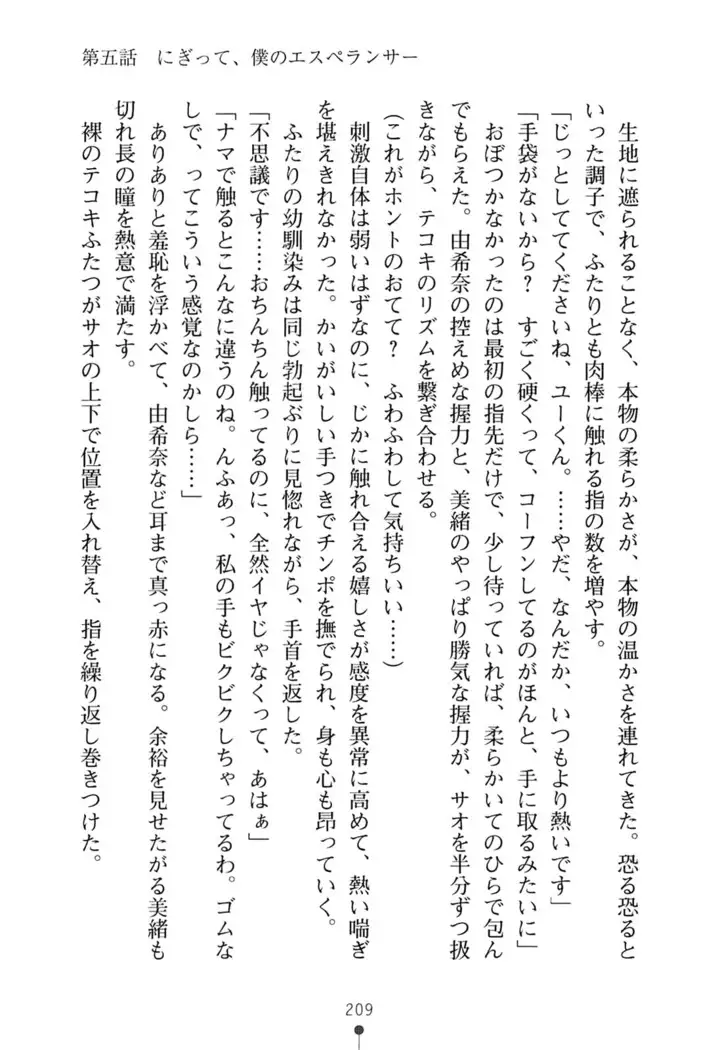 第五話　にぎって、僕のエスペランサー
　生地に遮られることなく、本物の柔らかさが、本物の温かさを連れてきた。恐る恐ると
いった調子で、ふたりとも肉棒に触れる指の数を増やす。
「じっとしててくださいね、ユーくん。……やだ、なんだか、いつもより熱いです」
「手袋がないから？　すごく硬くって、コーフンしてるのがほんと、手に取るみたいに」
　おぼつかなかったのは最初の指先だけで、少し待っていれば、柔らかいてのひらで包ん
でもらえた。由希奈の控えめな握力と、美緒のやっぱり勝気な握力が、サオを半分ずつ扱
きながら、テコキのリズムを繋ぎ合わせる。
（これがホントのおてて？　ふわふわして気持ちいい……）
　刺激自体は弱いはずなのに、じかに触れ合える嬉しさが感度を異常に高めて、熱い喘ぎ
を堪えきれなかった。かいがいしい手つきでチンポを撫でられ、身も心も昂っていく。
　ふたりの幼馴染みは同じ勃起ぶりに見惚れながら、手首を返した。
「不思議です……おちんちん触ってるのに、全然イヤじゃなくって、あはぁ」
「ナマで触るとこんなに違うのね。んふあっ、私の手もビクビクしちゃってるわ。ゴムな
しで、ってこういう感覚なのかしら……」
　ありありと羞恥を浮かべて、由希奈など耳まで真っ赤になる。余裕を見せたがる美緒も
切れ長の瞳を熱意で満たす。
　裸のテコキふたつがサオの上下で位置を入れ替え、指を繰り返し巻きつけた。
209